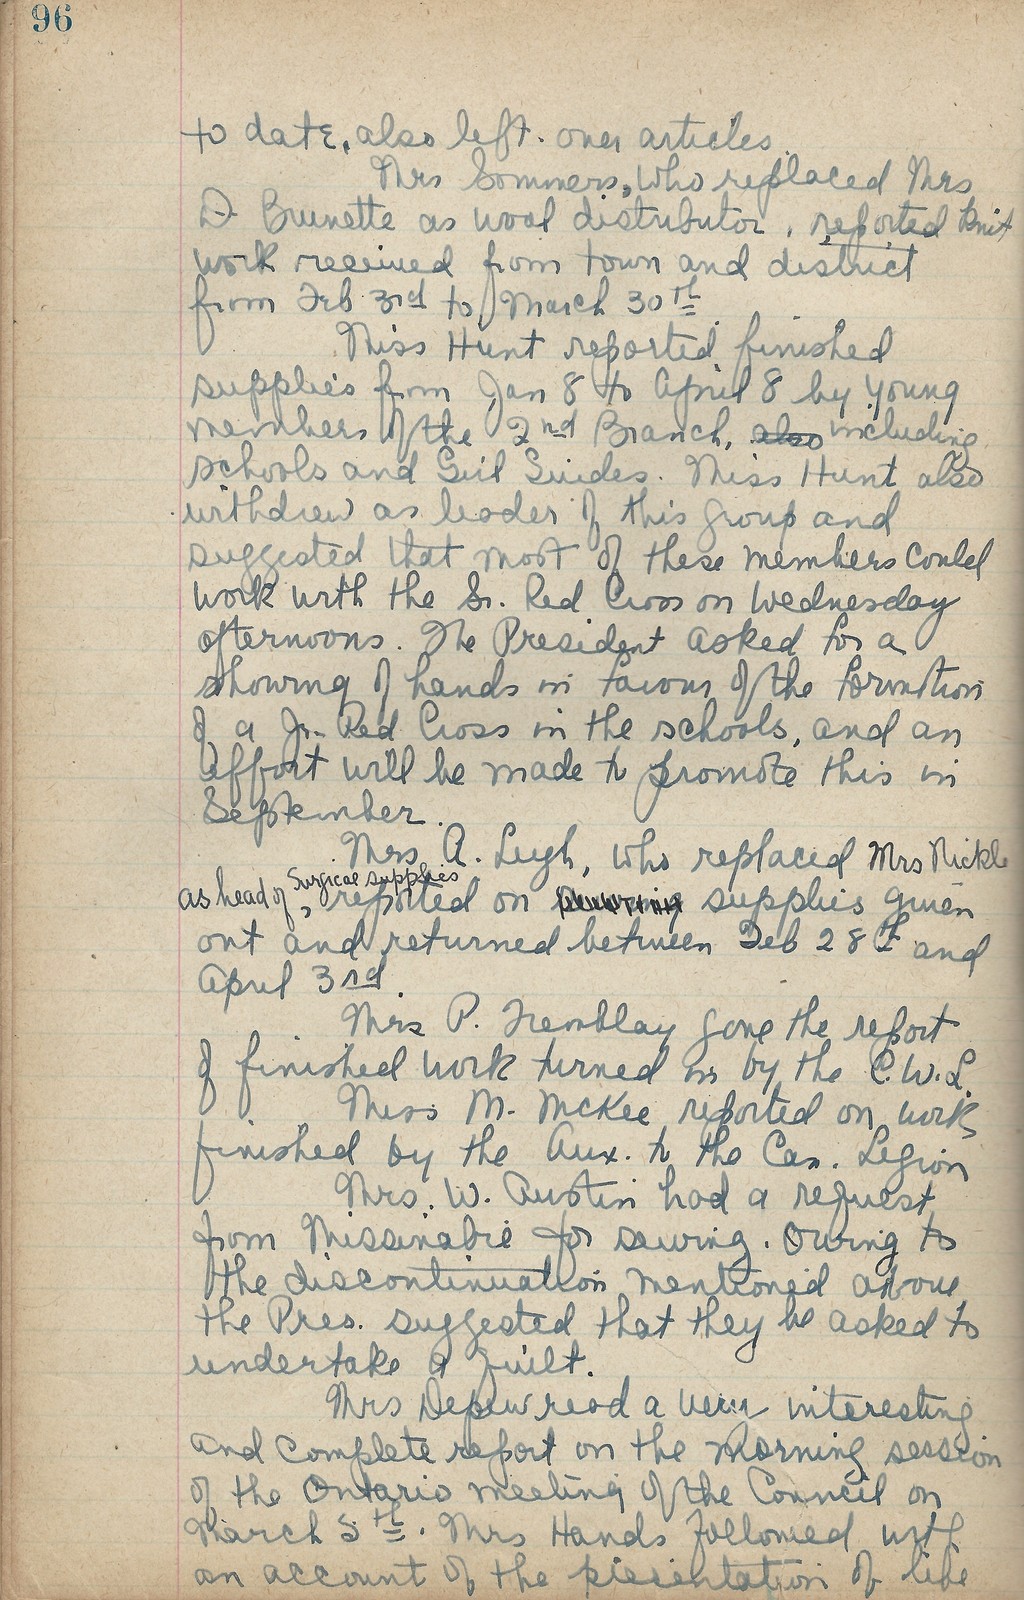 96
to date, also left-over articles.
Mrs Sommers, who replaced Mrs
D Brunette as wool distributor, reported knit
work received from town and district
from Feb 3rd to March 30th
Miss Hunt reported finished
supplies from Jan 8 to April 8 by young
members of the 2nd Branch, also including
schools and Girl Guides. Miss Hunt also
withdrew as leader of this group and
suggested that most of these members could
work with the Sr. Red Cross on Wednesday
afternoons. The President asked for a
showing of hands in favour of the formation
of a Jr. Red Cross in the schools, and an
effort will be made to promote this in
September.
Mrs A. Leigh, who replaced Mrs Nickle
as head of Surgical supplies, reported on supplies given
out and returned between Feb 28th and
April 3rd.
Mrs P. Tremblay gave the report
of finished work turned in by the C.W.L.
Miss M. McKee reported on work
finished by the Aux. to the Can. Legion
Mrs. W. Austin had a request
from Missinabie for sewing. Owing to
the discontinuation mentioned above
the Pres. suggested that they be asked to
undertake a quilt.
Mrs Depew read a very interesting
and complete report on the Morning session
of the Ontario meeting of the Council on
March 5th. Mrs Hands followed with
an account of the presentation of life